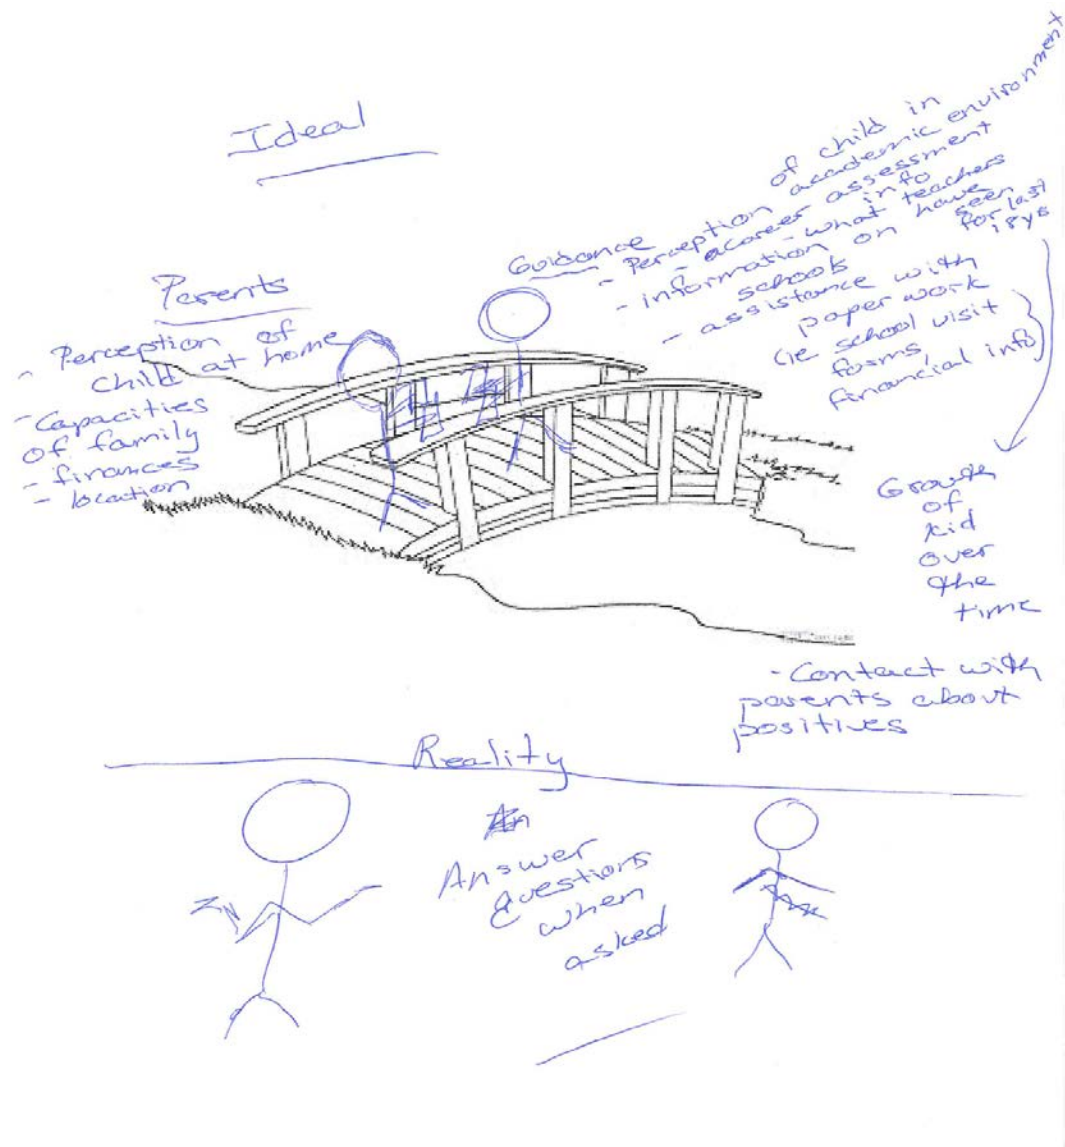 Ideal
Parents
- Perception of
child at home
- Capacities
of family
- finances
- location
Guidance
- Perception of child in
academic environment
- career assessment
info
- what teachers
have
seen
for last
- information on
schools
- assistance with
paper work
(ie school visit
forms,
financial info)
Growth
of
kid
over
the
time
- Contact with
parents about
positives
Reality
An
Answer
questions
when
asked